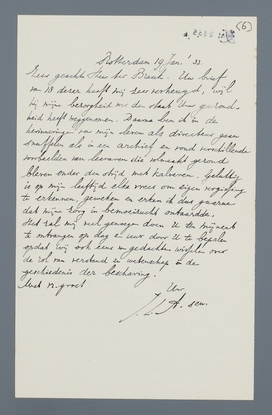 (6)
Rotterdam 19 Jan.' 33.
Zeer geachte Heer ter Braak. Uw brief
van 18 dezer heeft mij zeer verheugd, wijl
hij mijne bezorgdheid over den staat Uwer gezond-
heid heeft weggenomen. Daarna ben ik in de
herinneringen van mijn leven als directeur gaan
snuffelen als in een archief en vond verschillende
voorbeelden van leeraren die volmaakt gezond
bleven onder den strijd met kalveren. Gelukkig
is op mijn leeftijd elke vrees om eigen vergissing
te erkennen, geweken en erken ik dus gaarne
dat mijne zorg in bemoeizucht ontaardde.
Het zal mij veel genoegen doen U ten mijnent
te ontvangen op dag en uur door U te bepalen
opdat wij ook eens van gedachten wisselen over
de rol van verstand en wetenschap in de
geschiedenis der beschaving.
Met vr. groet
Uw
sen.